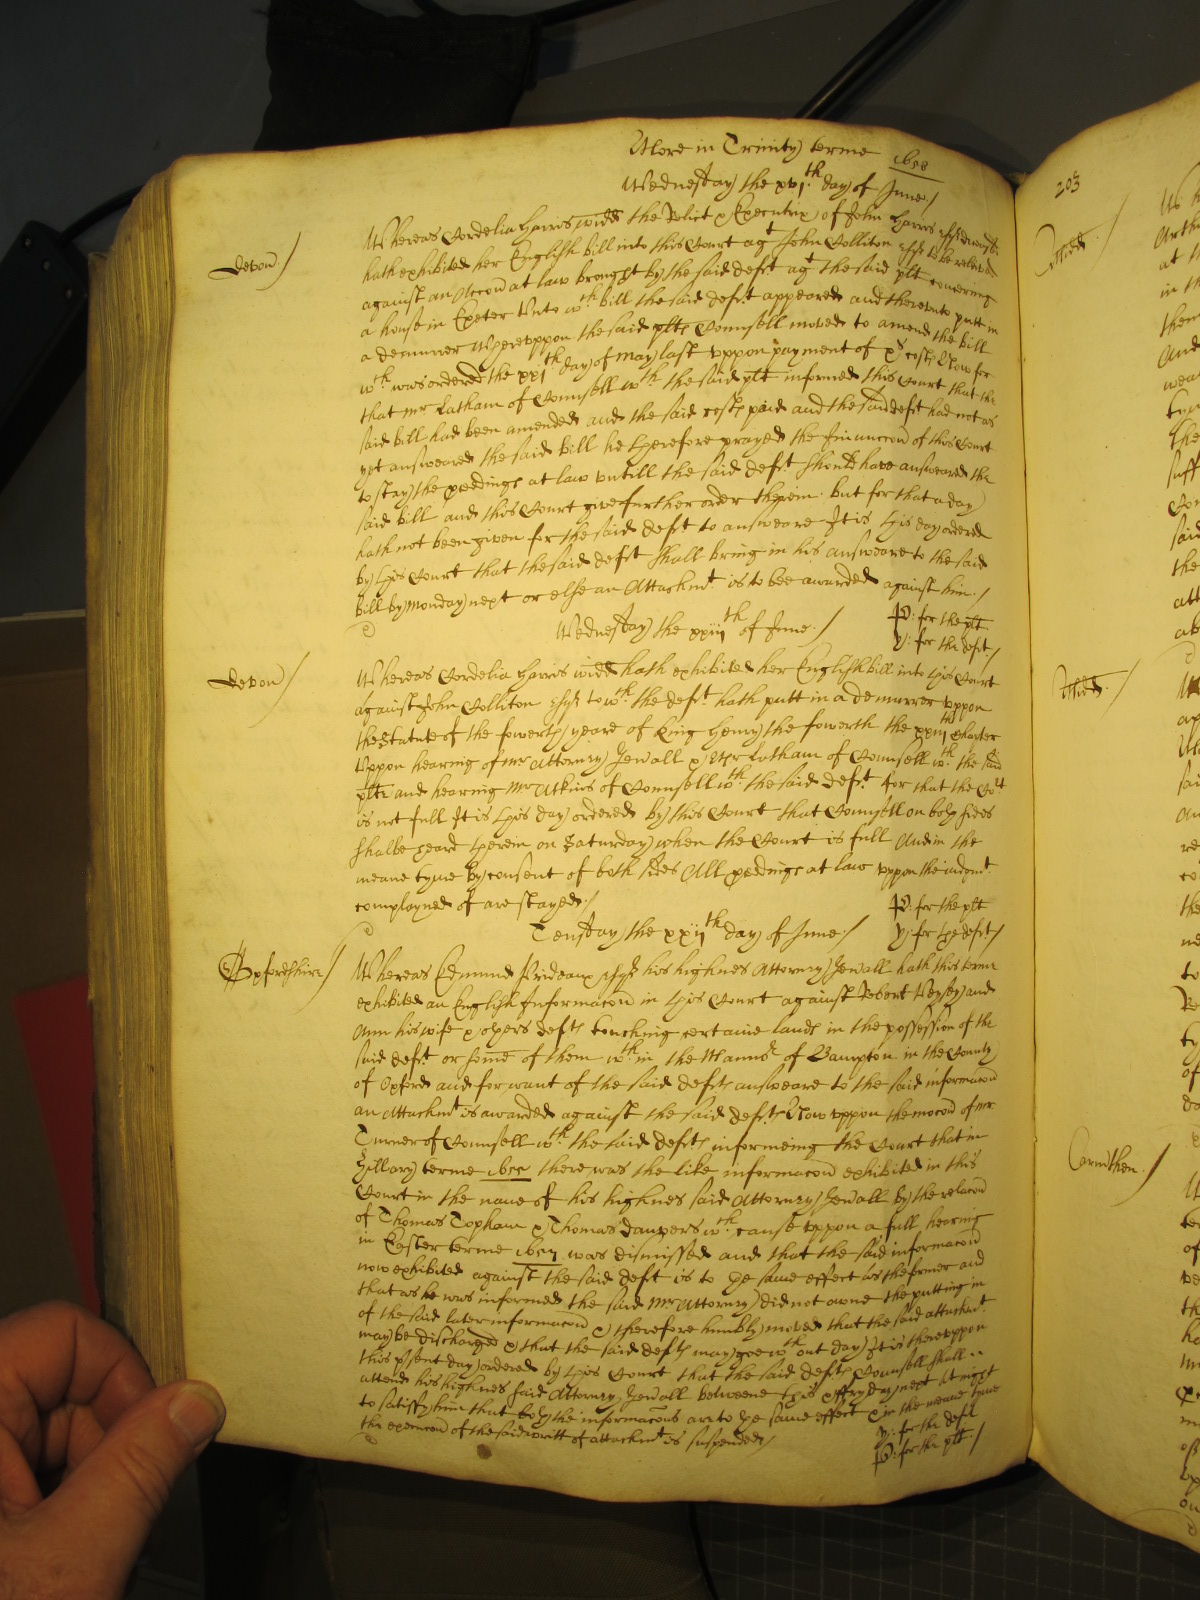 More in Trinity terme 1658
Wednesday the xvj.th day of June /
Devon /
Whereas Cordelia Harris widd the Relict & Executrix of John Harris
hath exhibited her English bill into this Court agt John Colliton Esqr to be releived
against an Accon at law brought by the said deft agt the said plt concering
a house in Exeter Unto wch bill the said deft appeared and therevnto putt in
a demurrer Whereuppon the said plts Counsell moved to amend the bill
wch was ordered the xxjth day of May last vppon payment of xs costs Now for
that Mr Latham of Counsell wth the said plt informed this Court that the
said bill had been amended and the said costs paid and the said deft had not as
yet answeared the said bill he therefore prayed the Iniunccon of this Court
to stay the pceedings at law vntill the said deft should have answeared the
said bill and this Court give further order therein. but for that a day
hath not been given for the said deft to answeare It is this day ordered
by this Court that the said deft shall bring in his answeare to the said
bill by Monday next or else an Attachmt is to bee awarded against him /
Wednesday the xxiijth of June /
P: for the plt
y: for the deft /
Devon /
Whereas Cordelia Harris widd hath exhibited her English bill into this Court
against John Colliton Esqr to wch the deft hath putt in a demurrer vppon
the Statute of the fowerth yeare of King Henry the fowerth the xxiijth Chapter
Vppon hearing of Mr Attorney Genall & Mr Latham of Counsell wth the said
plt and hearing Mr Atkins of Counsell wth the said deft for that the Cort
is not full It is this day ordered by this Court that Counsell on both sides
shalbe heard therein on Saturday when the Court is full And in the
meane tyme by consent of both sides All pceedings at law vppon the iudgmt
complayned of are stayed /
P: for the plt
y: for the deft /
Teusday the xxijth day of June /
Oxfordshire /
Whereas Edmund Prideaux Esqr his highnes Attorney Genall hath this terme
exhibited an English Informacon in this Court against Robert Veysey and
Ann his wife & others defts touching certaine lands in the possession of the
said deft or some of them wthin the Mannor of Bampton in the County
of Oxford and for want of the said defts answeare to the said informacon
an Attachmt is awarded against the said defts Now vppon the mocon of Mr
Turner of Counsell wth the said defts informeing the Court that in
Hillary terme 1655 there was the like informacon exhibited in this
Court in the name of his highnes said Attorney Genall by the relacon
of Thomas Topham & Thomas Danvers wch cause vppon a full hearing
in Easter terme 1657 was dismissed and that the said informacon
now exhibited against the said deft is to the same effect as the former and
that as he was informed the said Mr Attorney did not owne the putting in
of the said later informacon & therefore humbly moved that the said attachmt
may be discharged & that the said defts may goe wthout day It is therevppon
this psent day ordered by this Court that the said defts Counsell shall
attend his highnes said Attorney Genall betweene this & fryday next at night
to satisfy him that both the informacons are to the same effect & in the meane tyme
the execucon of the said writt of attachmt is suspended /
y: for the deft
P: for the plt /
203
Midd /
Midd. /
Carmthen. /